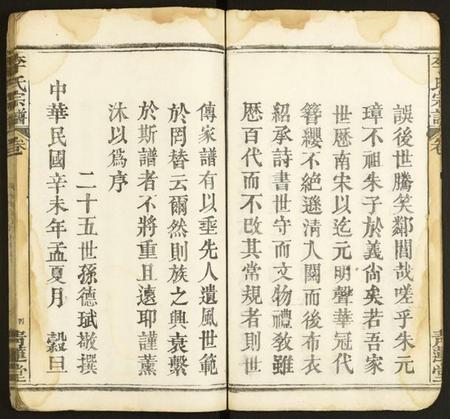 誤後世騰笑鄰閭哉嗟乎朱元
璋不祖朱子於義尙矣若吾家
世歷南宋以迄元明聲華冠代
簪纓不絕遜清入關而後布衣
紹承詩書世守而文物禮敎雖
歷百代而不改其常規者則世
傳家譜有以垂先人遺風世範
於罔替云爾然則族之興衰繫
於斯譜者不將重且遠耶謹薰
沐以爲序
二十五世孫德珷敬撰
中華民國辛未年孟夏月 穀旦
李氏宗譜
卷
青蓮堂
李氏宗譜
卷
青蓮堂